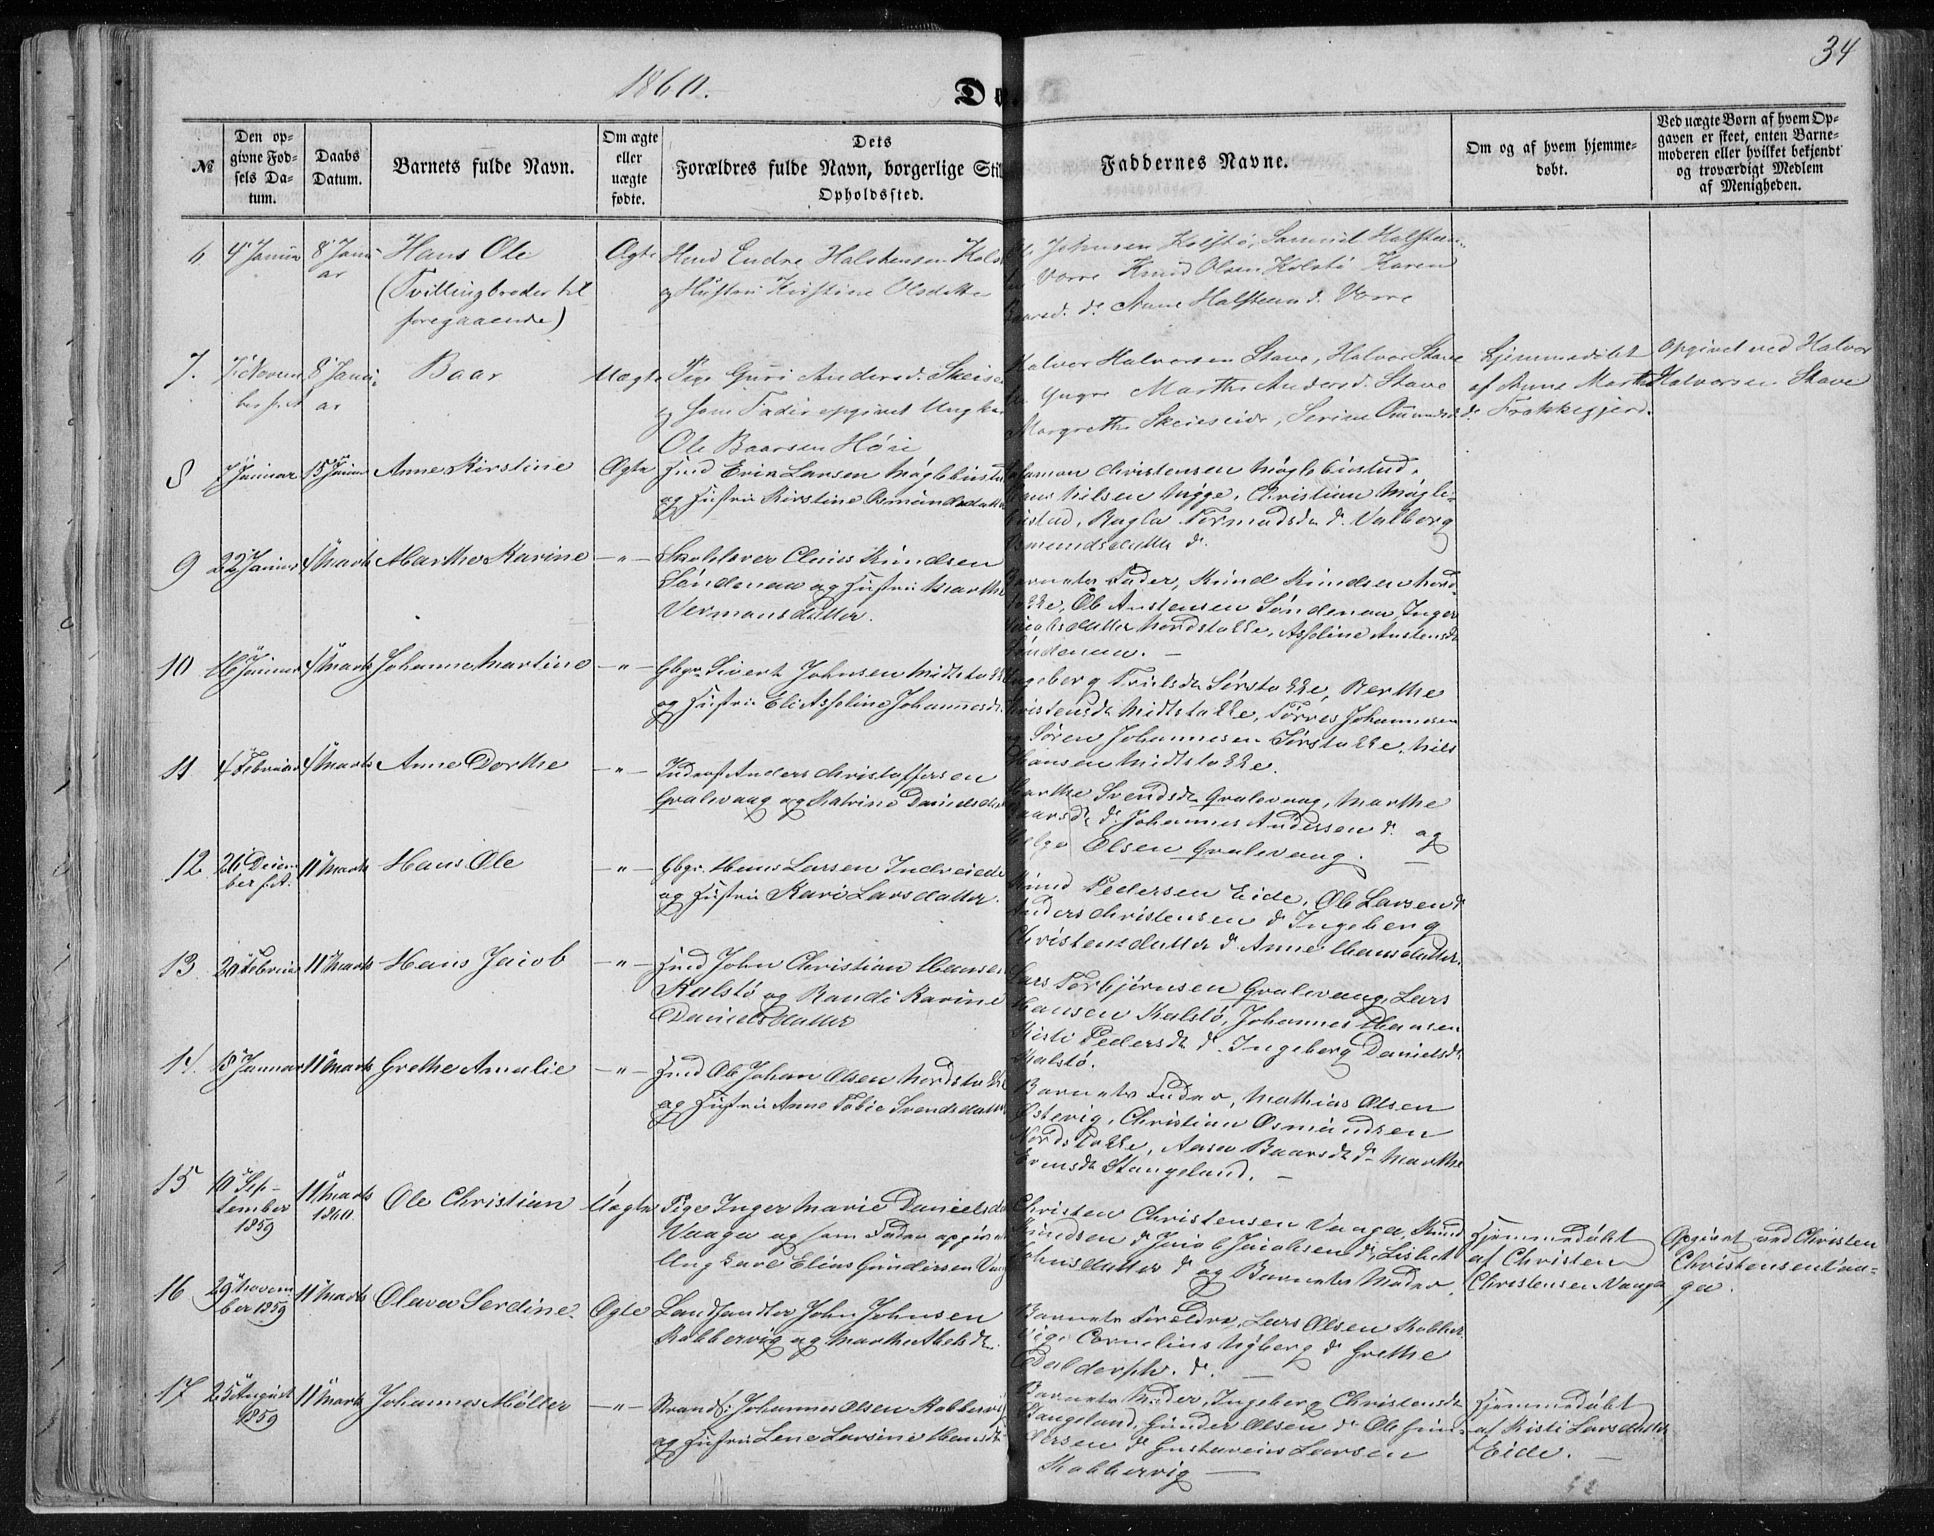 34
1860.
Do
№
Den op-
givne Fød-
sels Da-
tum.
Daabs
Datum.
Barnets fulde Navn.
Om ægte
eller
uægte
fødte.
Dets
Forældres fulde Navn, borgerlige Stil
Opholdssted.
Faddernes Navne.
Om og af hvem hjemme-
døbt.
Ved uægte Børn af hvem Op-
gaven er skeet, enten Barne-
moderen eller hvilket bekjendt
og troværdigt Medlem
af Menigheden.
6
4 Januar
8 Janu
ar
Hans Ole
(Tvillingbroder til
foregaaende)
Ægte
Endre Halstensen
og Hustru Kirstine Olsdatter
Johnsen Kolstø, Samuel Halsten
Vorre Knud Olsen Kolstø Karen
Baarsd. ds Anne Halstensd. Vorre
7.
7 Novem
ber f. A
8 Janu
ar
Baar
Uægte
Pige Guri Andersd. Skeise
og som Fader opgivet Ungkar
Ole Baarsen Høie
Halvor Halvorsen Stave, Halvor Stave
Yngre Marthe Andersd. Stave
Margrethe Skeiseide, Serine
Hjemmedøbt
af Anne Marthe
Opgivet ved Halvor
Halvorsen Stave
8
7 Januar
15 Januar
Anne Kirstine
Ægte
Huusmd Erik Larsen Møglebust
og Hustru Kirstine Osmundsdatter
Salamon Christensen Møglebustad.
Hans Nielsen Nygge, Christian Møgle-
bustad, Ragla Tormodsdr ds Valborg
Osmundsdatter ds.
9
22 Januar
4 Marts
Marthe Karine
— " —
Skolelærer Claus Knudsen
Søndenaa og Hustru Marthe
Vermansdatter.
Barnets Fader, Knud Knudsen Nord
stokke, Ole Austensen Søndenaa, Inger
Jacobsdatter Nordstokke, Asseline Austensdr
Søndenaa. —
10
16 Januar
4 Marts
Johanne Martine
— " —
Gbgr. Sivert Johnsen Midtstokke
og Hustru Eli Asseline Johannesdr.
Ingeborg Trulsdr Sørstokke, Berthe
Christensdr Midtstokke, Torres Johannesen
og Søren Johannesen Sørstokke, Nils
Hansen Midtstokke.
11
4 Februar
4 Marts
Anne Dorthe
— " —
Inderst Anders Christoffersen
Gvalevaag og Katrine Danielsdr
Marthe Svendsdr Gvalevaag, Marthe
Baarsdr ds. Johannes Andersen ds. og
Helge Olsen Gvalevaag. —
12
26 Decem
ber f. A.
11 Marts
Hans Ole
— " —
Gbgr. Hans Larsen Indreeide
og Hustru Kari Larsdatter.
Knud Pedersen Eide, Ole Larsen ds
Anders Christensen ds Ingeborg
Christensdatter ds Anne Hansdatter.
13.
20 Februar
11 Marts
Hans Jacob
— " —
Huusmd John Christian Hansen
Kalstø og Randi Karine
Danielsdatter
Lars Torbjørnsen Gvalevaag, Lars
Hansen Kalstø, Johannes Hansen
Kisti Pedersdr ds. Ingeborg Danielsdr
Kalstø.
14.
18 Januar
11 Marts
Grethe Amalie
— " —
Huusmd Ole Johan Olsen Nordstokke
og Hustru Anne Tobie Svendsdatter
Barnets Fader, Mathias Olsen
Østevig, Christian Osmundsen
Nordstokke, Aasa Baarsdr ds. Marthe
Evensdr Stangeland. —
15
10 Sep-
tember
1859
11 Marts
1860.
Ole Christian
Uægte
Pige Inger Marie Danielsdr
Vaaga og som Fader opgivet
Ungkarl Elias Gundersen Vaag
Christen Christensen Vaaga, Knud
Knudsen ds Jacob Jacobsen ds, Lisbet
Johnsdatter ds og Barnets Moder.
Hjemmedøbt
af Christen
Christensen Vaaga
Opgivet ved Christen
Christensen Vaa-
ga.
16
29 Novem
ber 1859
11 Marts
Olava Serdine.
Ægte
Landhandler John Johnsen
Kobbervig og Marthe Abelsdr.
Barnets Forældre, Lars Olsen Kobber
vig, Cornelius Nyberg ds Grethe
ds. —
17
25 August
1859
11 Marts
Johannes Møller
— " —
Strands. Johannes Olsen Kobbervig
og Hustru Lene Larsine Hansdr
Barnets Moder, Ingeborg Christensdr
Stangeland, Gunder Olsen ds Ole Gun-
dersen ds Gustavius Larsen
Kobbervig —
Hjemmedøbt
af Kisti Larsdatter
Eide. —